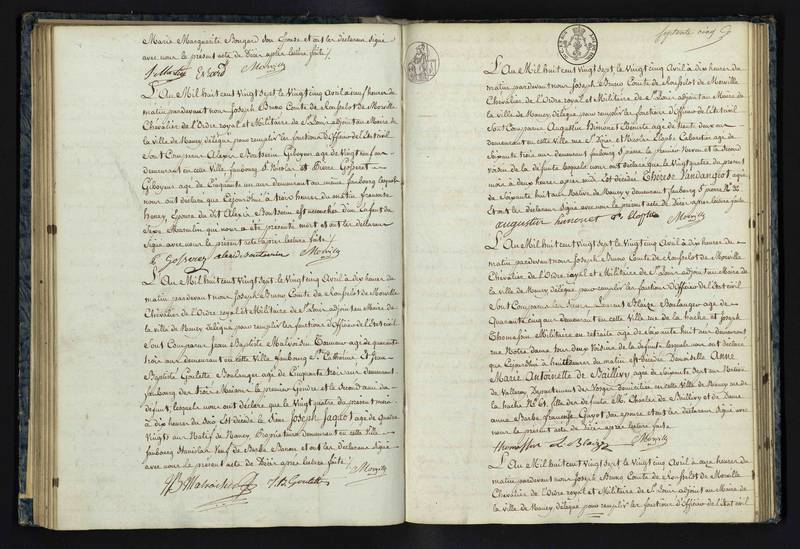 Marie Marguerite Bongard son épouse et ont les déclarans signé
avec nous le présent acte de Décès après lecture faite /.
Morville
L'An Mil huit cent Vingt sept le Vingt cinq Avril à onze heures du
matin pardevant nous Joseph Bruno Comte de Morville
Chevalier de l'Ordre royal et Militaire de St Louis adjoint au Maire de
la ville de Nancy délégué pour remplir les fonctions d'Officier de l'état civil
Sont Comparus Alexis Bontseu Giboyen agé de Vingt neuf ans
demeurant en cette Ville faubourg St Nicolas et Pierre Gosserez
Giboyen agé de Cinquante un ans demeurant au même faubourg lesquels
nous ont déclaré que Cejourd'hui à trois heures du matin françoise
Henry, Epouse du dit Alexis est accouchée d'un Enfant du
Sexe Masculin qui nous a été présenté mort et ont les déclarans
Signé avec nous le présent acte après lecture faite /.
Gosserez Morville
L'An Mil huit cent Vingt sept le Vingt cinq Avril à dix heures du
matin pardevant nous Joseph Bruno Comte de Morville
Chevalier de l'Ordre royal et Militaire de St Louis adjoint au Maire de
la ville de Nancy délégué pour remplir les fonctions d'Officier de l'état civil
Sont Comparus Jean Baptiste Malvoisin Tonneur agé de quarante
trois ans demeurant en cette Ville faubourg Ste Catherine et Jean
Baptiste Goulette Boulanger agé de Cinquante trois ans demeurant
faubourg des trois Maisons le premier Gendre et le Second ami du
défunt, lesquels nous ont déclaré que le Vingt quatre du présent mois
à dix heures du Soir est décédé le Sieur Joseph Jaquot agé de Quatre
Vingts ans Natif de Nancy Propriétaire demeurant en cette Ville
faubourg Stanislas Veuf de Barbe et ont les déclarans signé
avec nous le présent acte de Décès après lecture faite /.
Morville
JB Malvoisin JB Goulette
septante cinq
L'An Mil huit cent Vingt sept le Vingt cinq Avril à dix heures du
matin pardevant nous Joseph Bruno Comte de Morville
Chevalier de l'Ordre royal et Militaire de St Louis adjoint au Maire de
la ville de Nancy, délégué pour remplir les fonctions d'Officier de l'état civil
Sont Comparus Augustin Simonet agé de trente deux ans
demeurant en cette Ville et Nicolas Cabaretier agé de
Soixante trois ans demeurant faubourg St pierre le premier Neveu et le Second
voisin de la défunte lesquels nous ont déclaré que le Vingt quatre du présent
mois à deux heures après midi est décédée Thérèse Vandangeot agée
de Soixante huit ans Native de Nancy y demeurant faubourg St pierre
Et ont les déclarans signé avec nous le présent acte de Décès après lecture faite
augustin Morville
L'An Mil huit cent Vingt sept le Vingt cinq Avril à dix heures du
matin pardevant nous Joseph Bruno Comte de Morville
Chevalier de l'Ordre royal et Militaire de St Louis adjoint au Maire de
la ville de Nancy, délégué pour remplir les fonctions d'Officier de l'état civil
Sont Comparus les Sieurs Laurent Blaize Boulanger agé de
Quarante cinq ans demeurant en cette Ville rue de la hache et Joseph
Thomassin Militaire en retraite agé de Soixante huit ans demeurant
rue Notre Dame tous deux Voisins de la défunte lesquels nous ont déclaré
que Cejourd'hui à huit heures du matin est décédée Demoiselle Anne
Marie Antoinette de Baillivy agée de Soixante sept ans Native
de Valleroy, Département des Vosges domiciliée en cette Ville de Nancy rue de
la hache No 61, fille des défunts Mr Charles de Baillivy et de Dame
Anne Barbe françoise Guyot Son épouse et ont les déclarans Signé avec
nous le présent acte de Décès après lecture faite.
thomassin L Blaize Morville
L'An Mil huit cent Vingt sept le Vingt cinq Avril à onze heures du
matin pardevant nous Joseph Bruno Comte de Morville
Chevalier de l'Ordre royal et Militaire de St Louis adjoint au Maire de
la ville de Nancy, délégué pour remplir les fonctions d'Officier de l'état civil